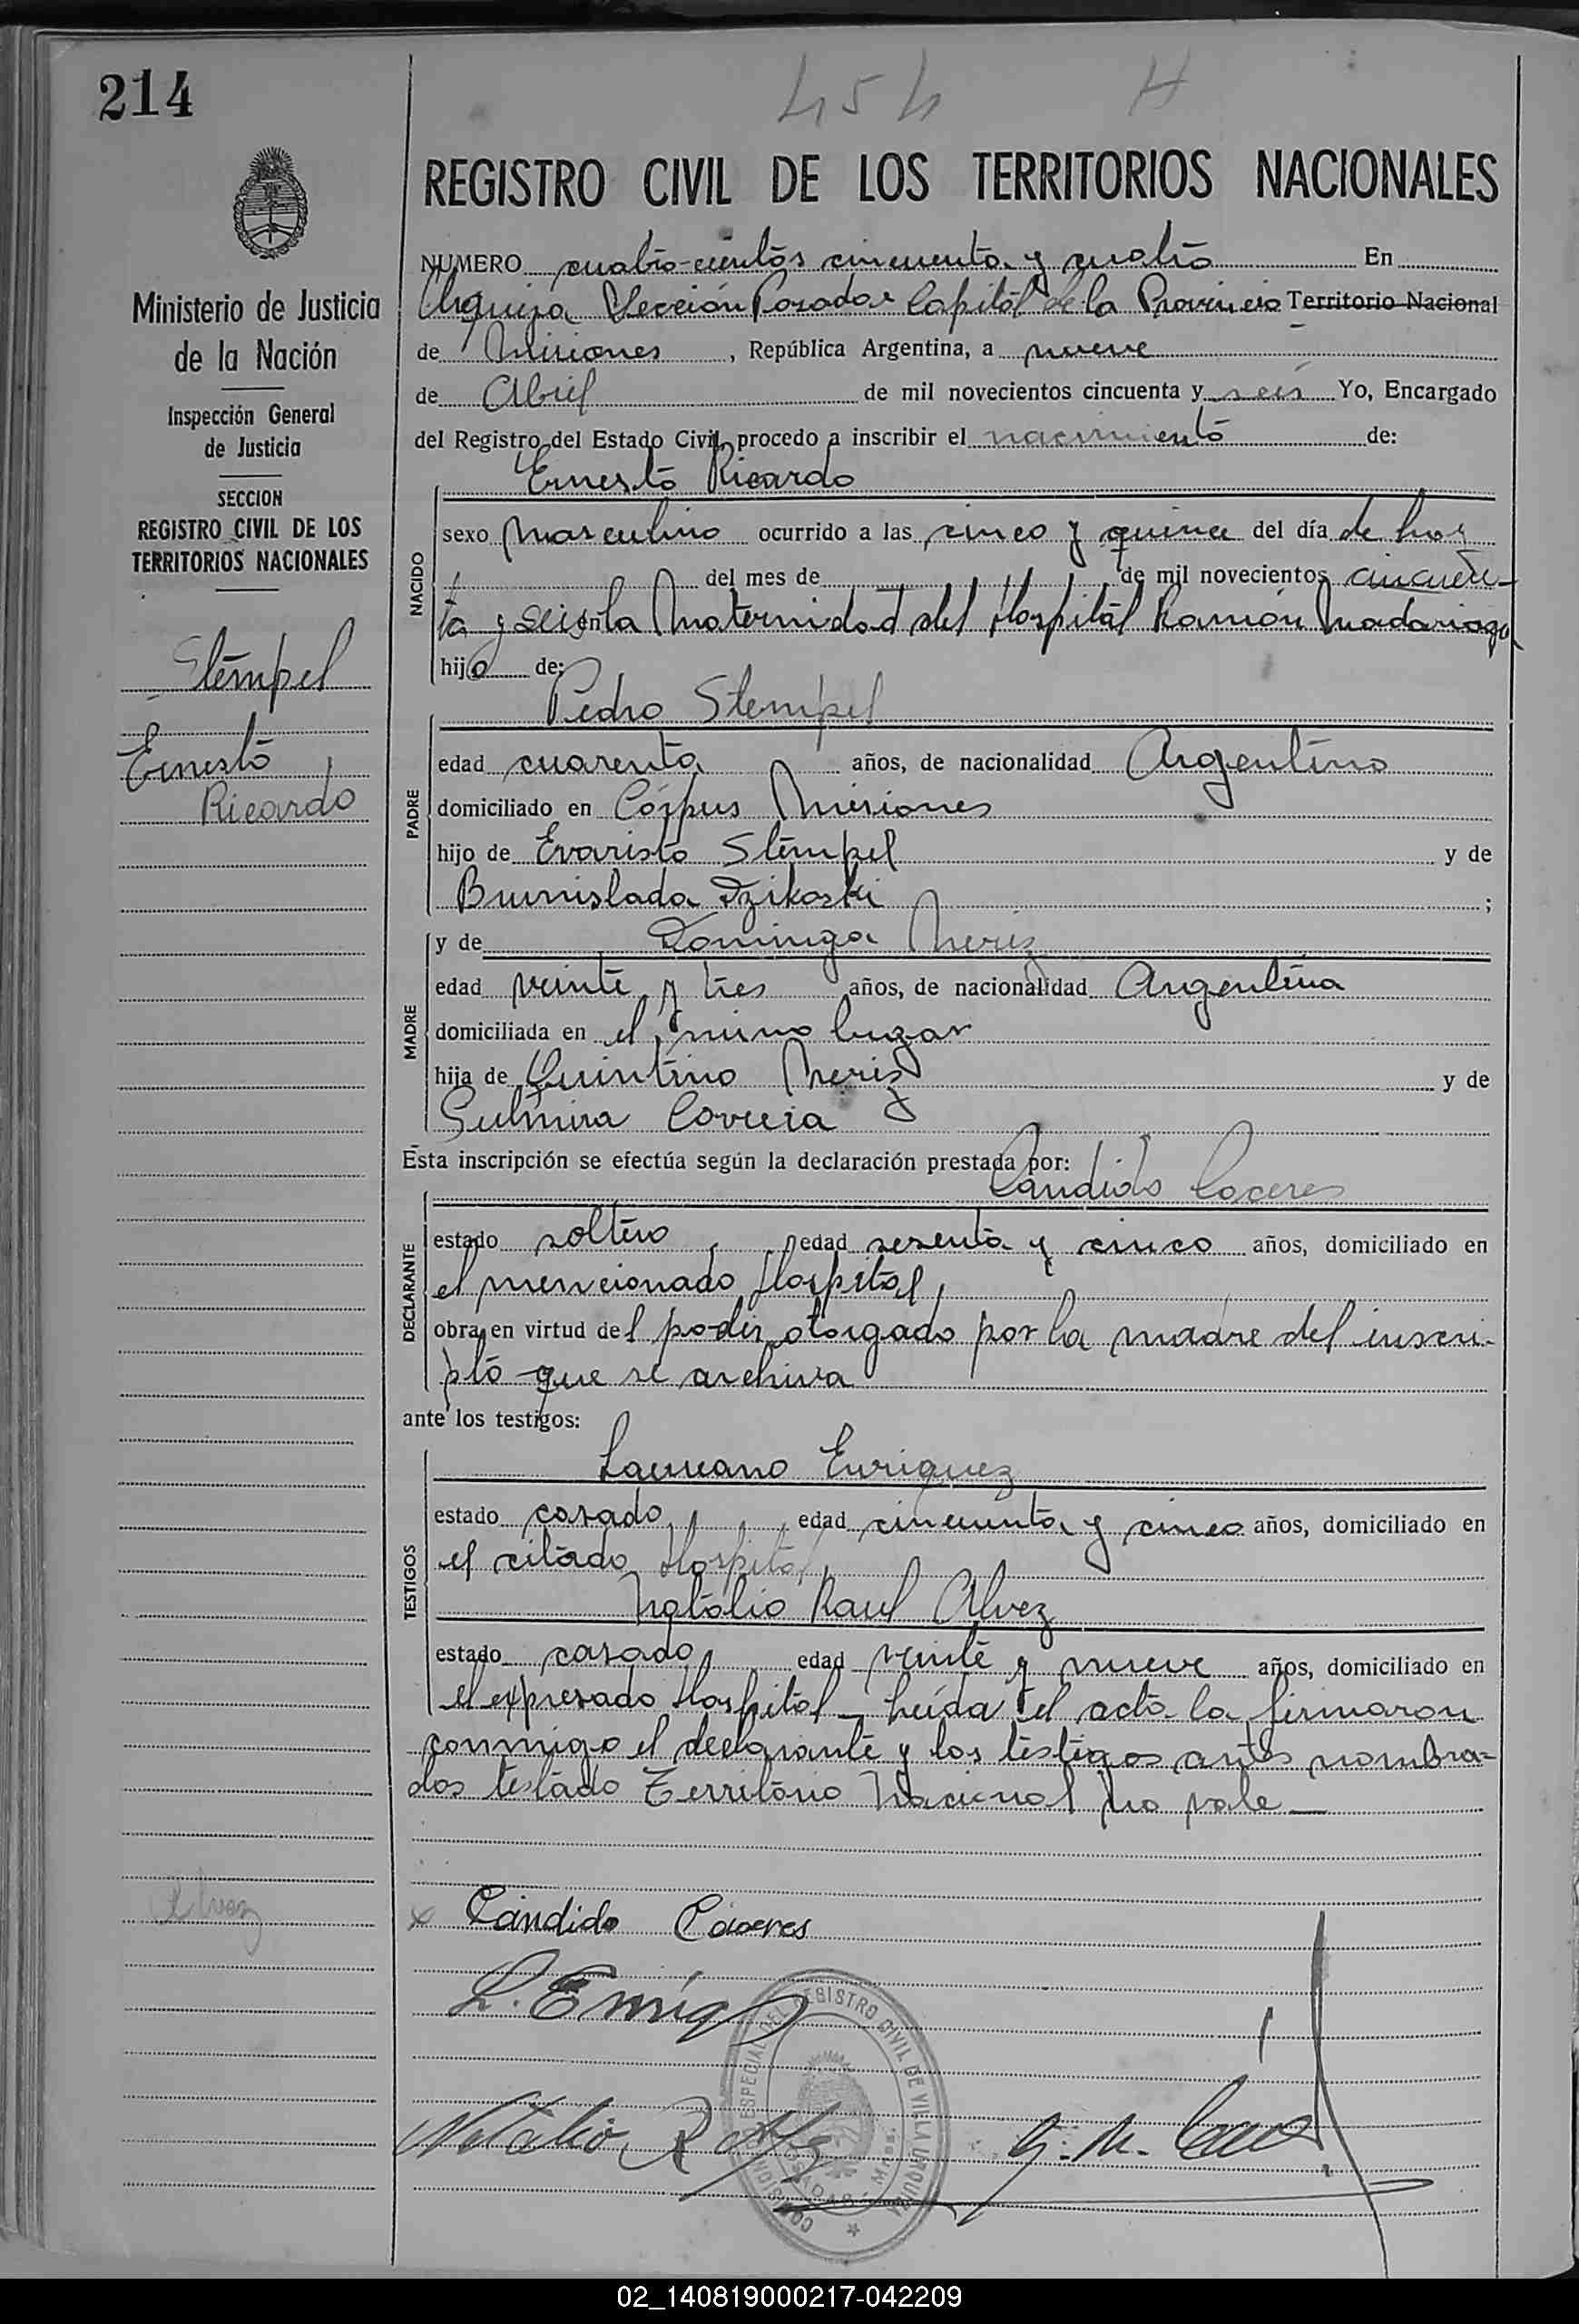 214
454 H
REGISTRO CIVIL DE LOS TERRITORIOS NACIONALES
Ministerio de Justicia
de la Nación
Inspección General
de Justicia
SECCION
REGISTRO CIVIL DE LOS
TERRITORIOS NACIONALES
Stempel
Ernesto
Ricardo
NUMERO cuatro-cientos cincuenta y cuatro En
Urquiza Sección Posadas Capital de la Provincia Territorio Nacional
de Misiones, República Argentina, a nueve
de Abril de mil novecientos cincuenta y seis Yo, Encargado
del Registro del Estado Civil, procedo a inscribir el nacimiento de:
Ernesto Ricardo
NACIDO
sexo masculino ocurrido a las cinco y quince del día de hoy
del mes de de mil novecientos cincuen-
ta y seis en la Maternidad del Hospital Ramón Madariaga
hijo de:
Pedro Stempel
PADRE
edad cuarenta años, de nacionalidad Argentino
domiciliado en Córpus Misiones
hijo de Evaristo Stempel y de
Brunislada ;
y de Dominga Meriz
MADRE
edad veinte y tres años, de nacionalidad Argentina
domiciliada en el mismo lugar
hija de Quintino Meriz y de
Correia
Esta inscripción se efectúa según la declaración prestada por:
Candido Caceres
DECLARANTE
estado soltero, edad sesenta y cinco años, domiciliado en
el mencionado Hospital,
obra en virtud del poder otorgado por la madre del inscri-
pto que se archiva
ante los testigos:
Laureano Enriquez
TESTIGOS
estado casado, edad cincuenta y cinco años, domiciliado en
el citado Hospital,
Natalio Raul Alvez
estado casado, edad veinte y nueve años, domiciliado en
el expresado Hospital - Leída el acta la firmaron
conmigo el declarante y los testigos antes nombra-
dos testado Territorio Nacional no vale
Alvez
x Cándido Cáceres
L. Enriq
Natalio R Alvez
COMISION ESPECIAL DEL REGISTRO CIVIL DE VILLA URQUIZA
POSADAS Mnes.
02_140819000217-042209